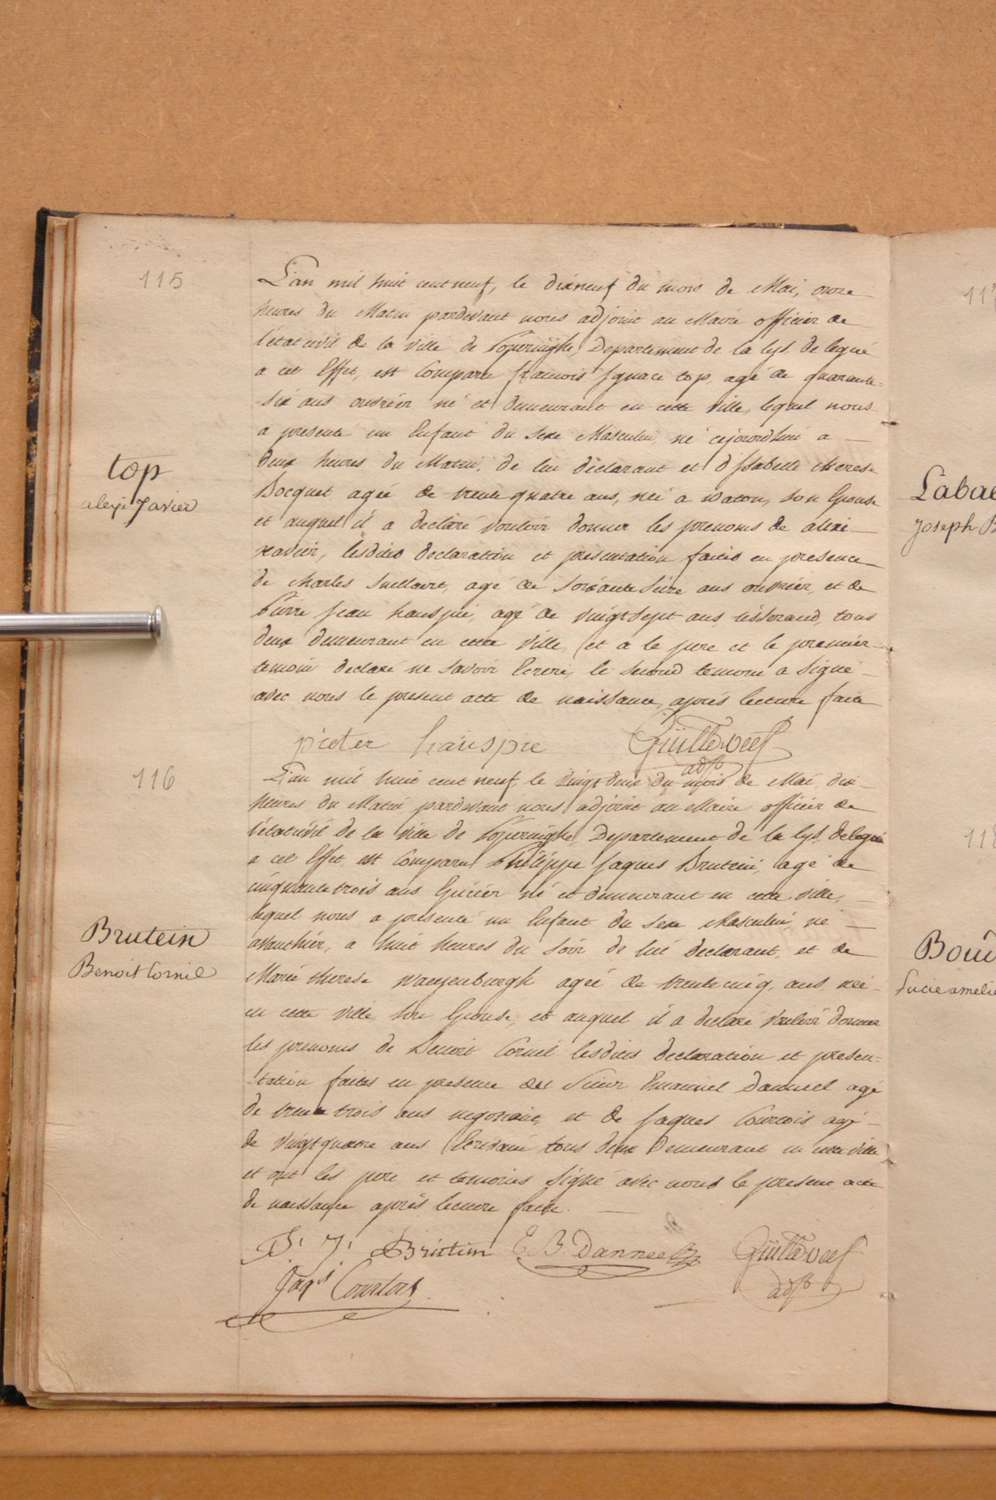 115
L'an mil huit cent neuf, le dixneuf du mois de Mai, onze
heures du Matin pardevant nous adjoint au Maire officier de
l'état civil de la ville de Poperinghe, Departement de la Lys delegué
a cet Effet, est Comparu francois Ignace top, agé de quarante-
six ans ouvrier né et demeurant en cette ville, lequel nous
a presenté un Enfant du sexe Masculin, né cejourdhui a
deux heures du Matin, de lui déclarant et d'Isabelle therese
Bocquet agée de trente quatre ans, née a watou, son Epouse
et auquel il a declaré vouloir donner les prenoms de alexi
xavier, lesdites declaration et présentation faites en presence
de charles agé de soixante seize ans ouvrier, et de
Pierre Jean hauspie, agé de vingt sept ans tisserand, tous
deux demeurant en cette ville, et a le pere et le premier
temoin declaré ne savoir Ecrire, le second temoin a signé
avec nous le present acte de naissance, après lecture faite
top
alexi Xavier
pieter hauspie
adjt
116
L'an mil huit cent neuf le vingt deux du mois de Mai, dix
heures du Matin pardevant nous adjoint au Maire officier de
l'état civil de la ville de Poperinghe, Departement de la Lys delegué
a cet Effet est Comparu Philippe Jaques Brutein, agé de
cinquante trois ans Epicier né et demeurant en cette ville,
lequel nous a presenté un Enfant du sexe Masculin, né
avanthier, a huit heures du soir de lui declarant, et de
Marie therese agée de trente cinq ans née
en cette ville son Epouse, et auquel il a declaré vouloir donner
les prenoms de Benoit Cornil lesdites declaration et presen-
tation faites en presence des Sieur Emanuel Danneel agé
de trente trois ans negociant, et de Jaques Courtois agé
de vingt quatre ans Ecrivain tous deux Demeurant en cette ville
et ont les pere et temoins signé avec nous le present acte
de naissance après lecture faite.
Brutein
Benoit Cornil
P. J. Brutein E. B. Danneel
adjt
Jaqs Courtois
Labae
Joseph B
Bou
Lucie amelie